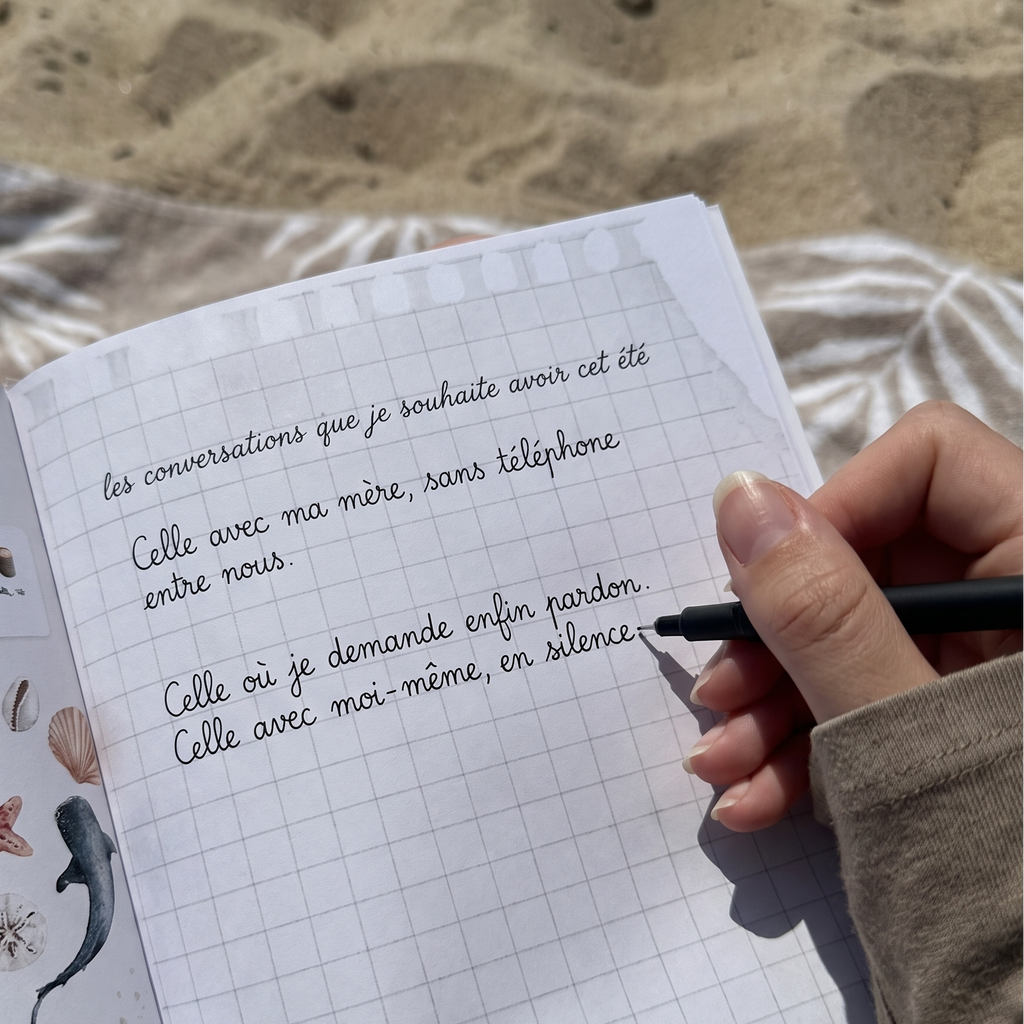 les conversations que je souhaite avoir cet été
Celle avec ma mère, sans téléphone
entre nous.
Celle où je demande enfin pardon.
Celle avec moi-même, en silence.